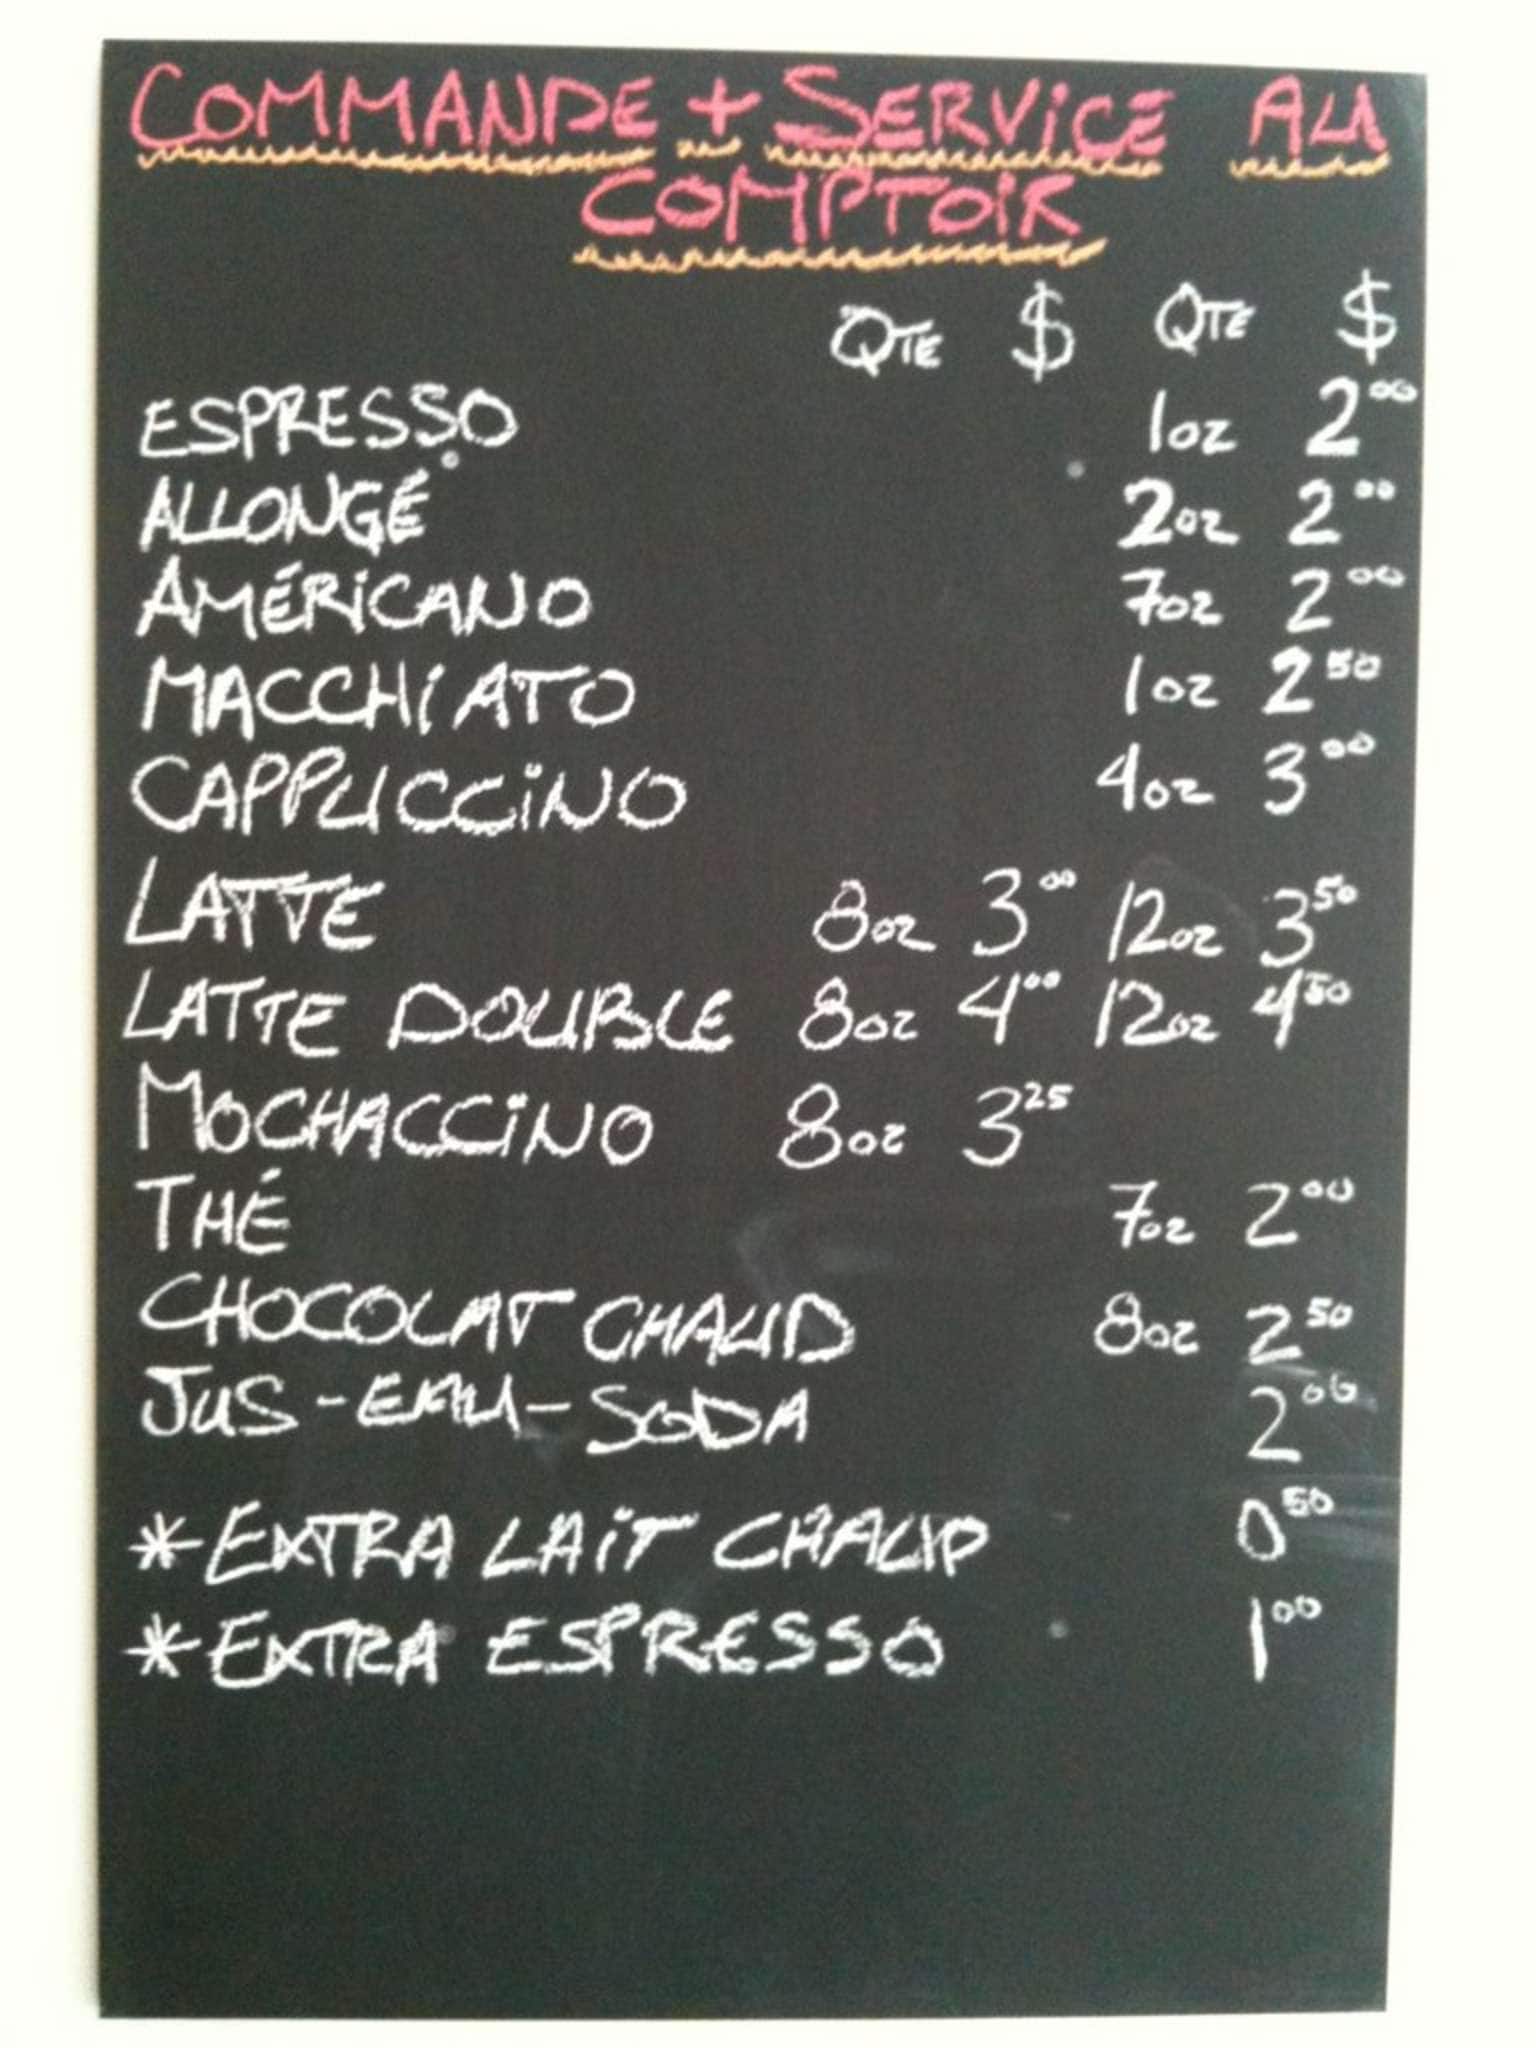 COMMANDE + SERVICE AU
COMPTOIR
QTE $ QTE $
ESPRESSO 1oz 2.00
ALLONGÉ 2oz 2.00
AMÉRICANO 7oz 2.00
MACCHIATO 1oz 2.50
CAPPUCCINO 4oz 3.00
LATTE 8oz 3.00 12oz 3.50
LATTE DOUBLE 8oz 4.00 12oz 4.50
MOCHACCINO 8oz 3.25
THÉ 7oz 2.00
CHOCOLAT CHAUD 8oz 2.50
JUS-EAU-SODA 2.00
*EXTRA LAIT CHAUD 0.50
*EXTRA ESPRESSO 1.00